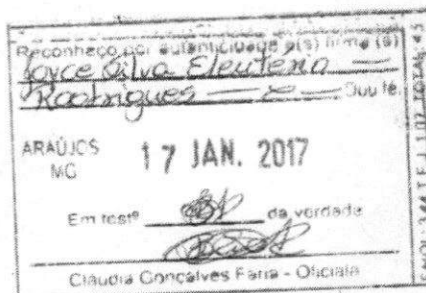 Reconheço por autenticidade a(s) firma (s)
Joyce Silva Eleuterio
Rodrigues Dou fé.
ARAÚJOS
MG
17 JAN. 2017
Em testº da verdade
Claudia Gonçalves Faria - Oficiala